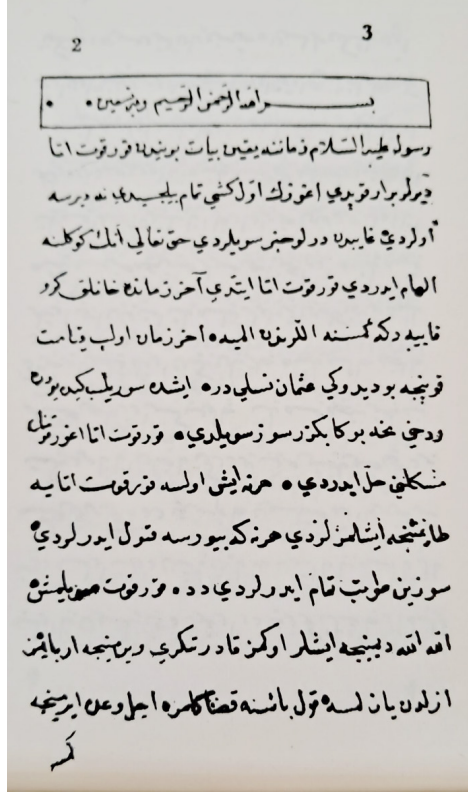 3
2
بسم الله الرحمن الرحيم وبه نستعين
رسول عليه السلام زماننه يقين بيات بويندن قورقوت اتا
ديرلر بر ار قوپدي اغوزك اول كشي تمام بلجيسيدي نه ديرسه
اولردي غايبدن درلو خبر سويلردي حق تعالي انك كوكلنه
الهام ايدردي قورقوت اتا ايتدي آخر زمانده خانلق كرو
قاييه دكه كمسنه اللرندن الميه اخر زمان اولب قيامت
قوپنجه بو ديدوكي عثمان نسلي در ايشده سوريلب كيده يورر
ودخي نجه بوكا بكزر سوز سويلدي قورقوت اتا اغوز قومنك
مشكلني حل ايدردي هر نه ايش اولسه قورقوت اتايه
طانشمينجه ايشلمزلردي هر نه كه بيورسه قبول ايدرلردي
سوزين طوتب تمام ايدرلردي دده قورقوت سويلمش
الله الله ديمينجه ايشلر اوكمز قادر تكري ويرمينجه ار بايمز
ازلدن يازلمسه قول باشنه قضا كلمز اجل وعده ايرمينجه
كمسه